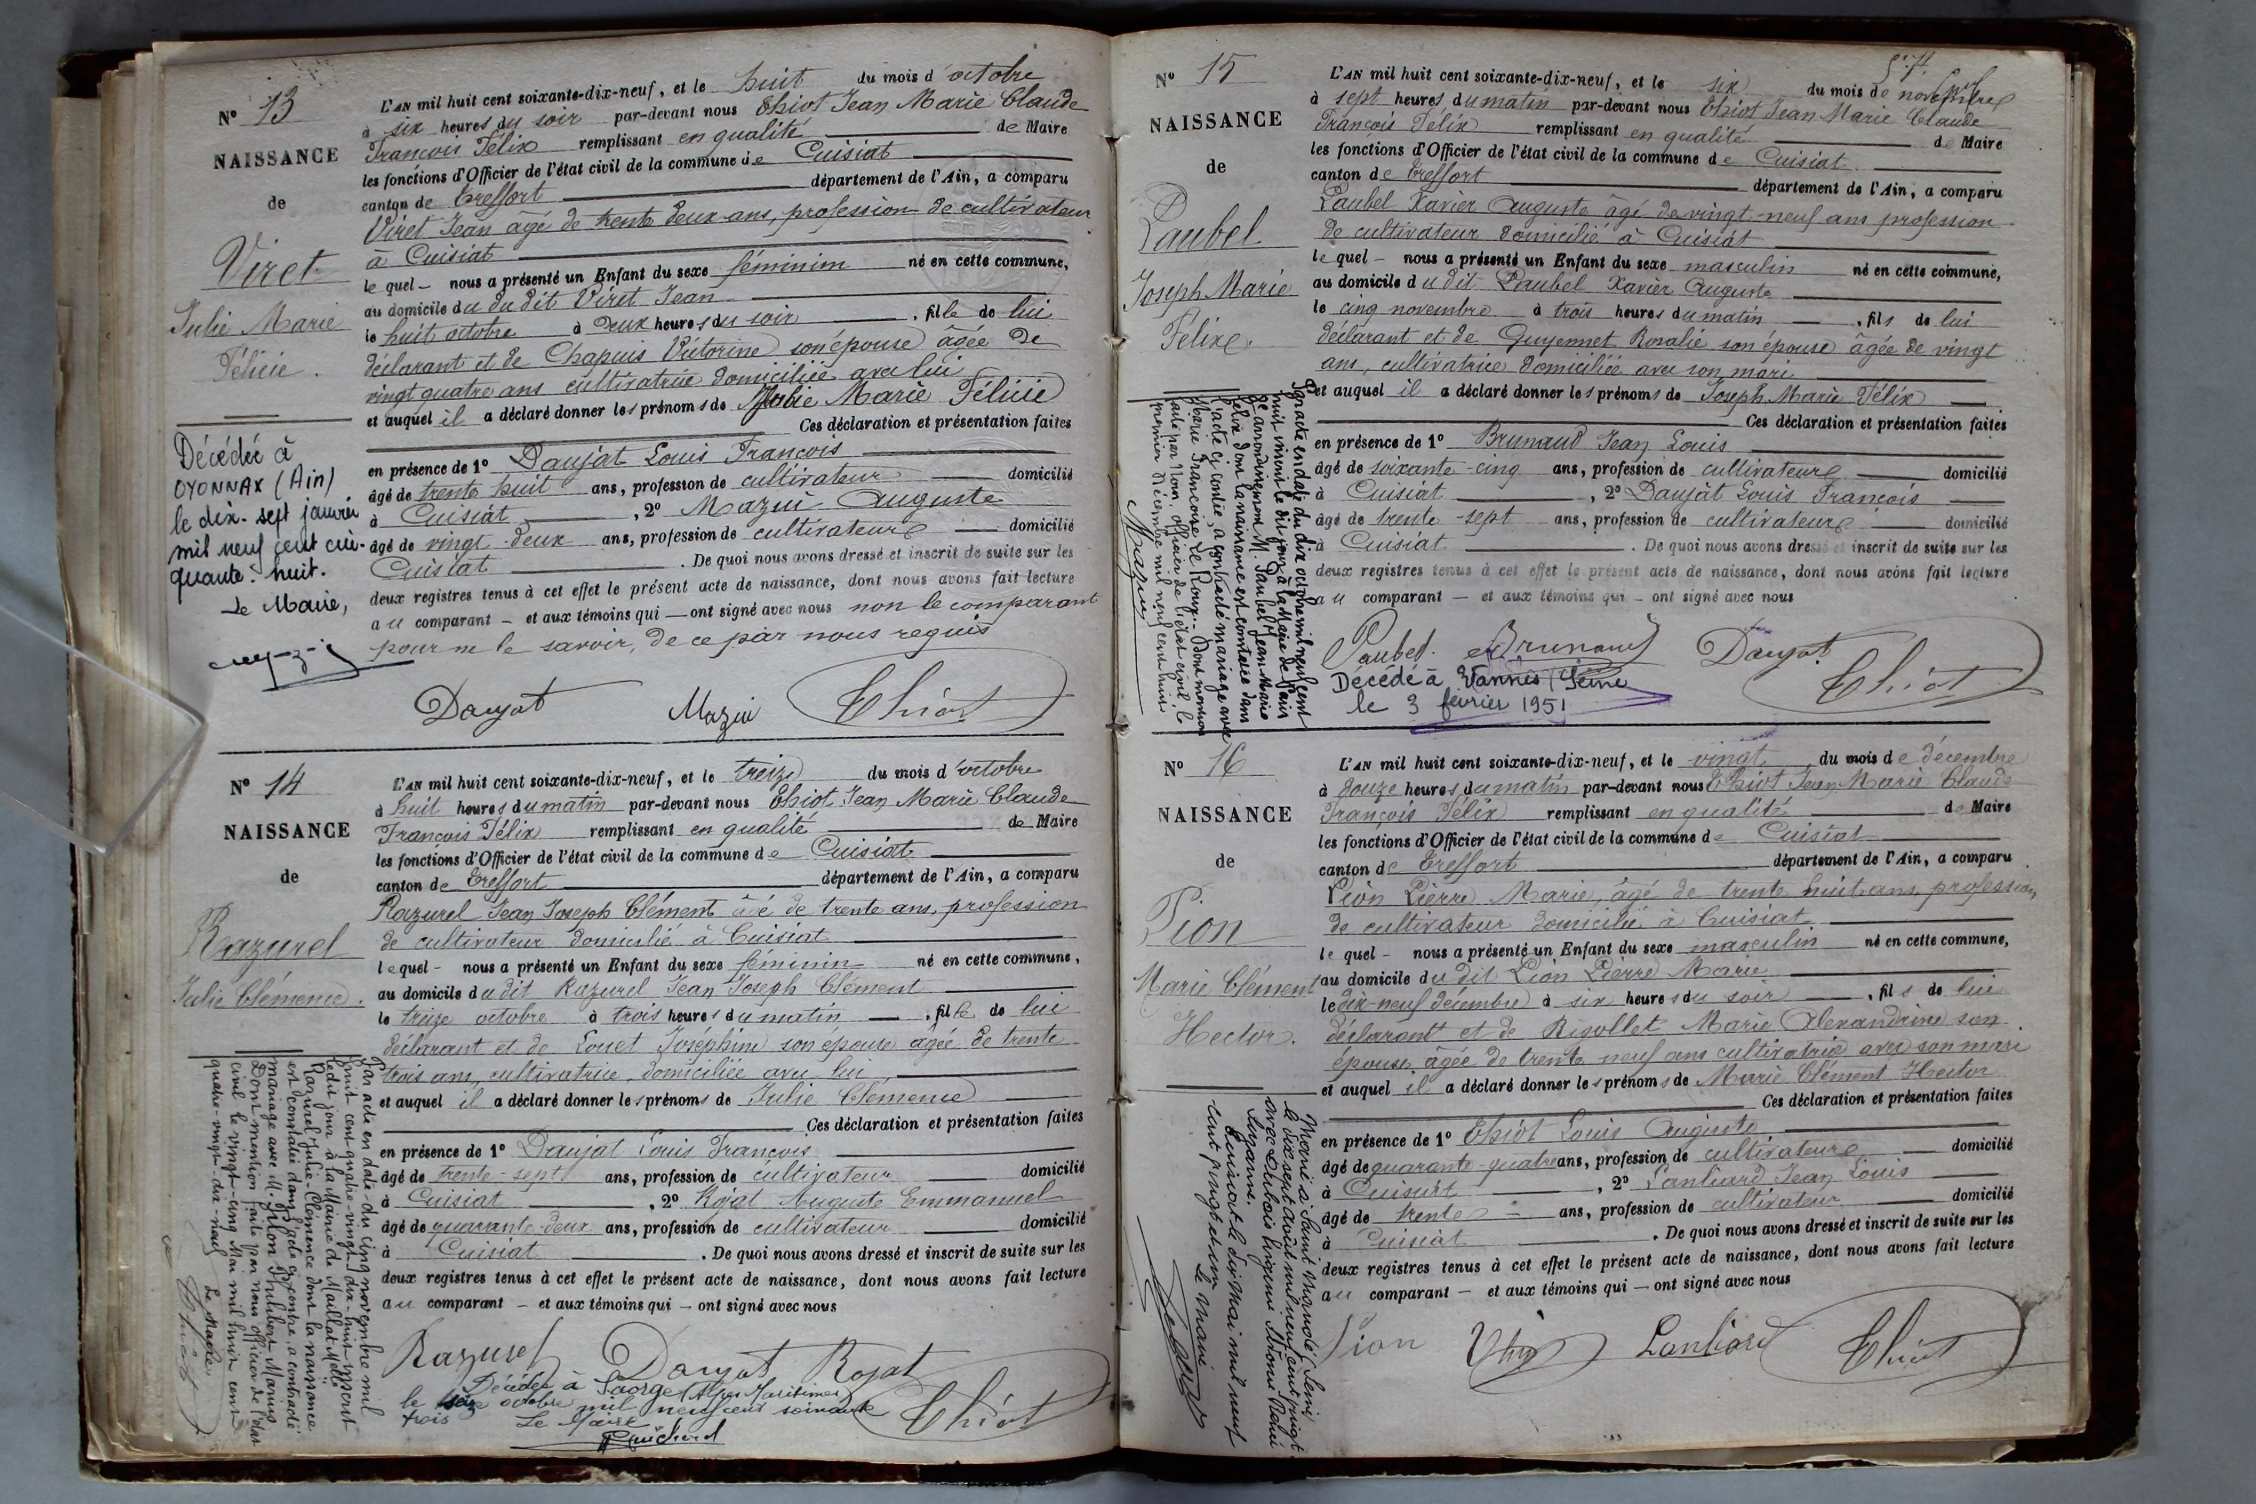 N° 13
NAISSANCE
de
Viret
Julie Marie
Félicie.
Décédée à
OYONNAX (Ain)
le dix-sept janvier
mil neuf cent cin-
quante-huit.
Le Maire,
L'AN mil huit cent soixante-dix-neuf, et le huit du mois d'octobre
à six heures du soir par-devant nous Thiot Jean Marie Claude
François Félix remplissant en qualité de Maire
les fonctions d'Officier de l'état civil de la commune de Cuisiat
canton de Treffort département de l'Ain, a comparu
Viret Jean âgé de trente deux ans, profession de cultivateur
a Cuisiat
le quel – nous a présenté un Enfant du sexe féminim né en cette commune,
au domicile du du dit Viret Jean
le huit octobre à deux heures du soir , fille de lui
déclarant et de Chapuis Victorine son épouse âgée de
vingt quatre ans cultivatrice domiciliée avec lui
et auquel il a déclaré donner les prénoms de Julie Marie Félicie
Ces déclaration et présentation faites
en présence de 1° Daujat Louis François
âgé de trente huit ans, profession de cultivateur domicilié
à Cuisiat , 2° Mazui Auguste
âgé de vingt-deux ans, profession de cultivateur domicilié
Cuisiat . De quoi nous avons dressé et inscrit de suite sur les
deux registres tenus à cet effet le présent acte de naissance, dont nous avons fait lecture
au comparant – et aux témoins qui – ont signé avec nous non le comparant
pour ne le savoir, de ce par nous requis
Daujat Mazui Thiot
N° 14
NAISSANCE
de
Razurel
Julie Clémence.
Par acte en date du cinq novembre mil
huit cent quatre-vingt-dix-huit inscrit
ledit jour à la Mairie de Maillat Melle
Razurel Julie-Clémence dont la naissance
est constatée dans l'acte ci-contre, a contracté
mariage avec M. Philibert Marius
Dont mention faite par nous officier de l'état
civil le vingt-cinq Mai mil huit cent
quatre-vingt-dix-neuf Le Maire
Thiot
L'AN mil huit cent soixante-dix-neuf, et le treize du mois d'octobre
à huit heures du matin par-devant nous Thiot Jean Marie Claude
François Félix remplissant en qualité de Maire
les fonctions d'Officier de l'état civil de la commune de Cuisiat
canton de Treffort département de l'Ain, a comparu
Razurel Jean Joseph Clément âgé de trente ans, profession
de cultivateur domicilié à Cuisiat
lequel – nous a présenté un Enfant du sexe féminin né en cette commune,
au domicile du dit Razurel Jean Joseph Clément
le treize octobre à trois heures du matin – , fille de lui
déclarant et de Louet Joséphine son épouse âgée de trente
trois ans, cultivatrice, domiciliée avec lui
et auquel il a déclaré donner les prénoms de Julie Clémence
Ces déclaration et présentation faites
en présence de 1° Daujat Louis François
âgé de trente-sept ans, profession de cultivateur domicilié
à Cuisiat , 2° Rojat Auguste Emmanuel
âgé de quarante-deux ans, profession de cultivateur domicilié
à Cuisiat . De quoi nous avons dressé et inscrit de suite sur les
deux registres tenus à cet effet le présent acte de naissance, dont nous avons fait lecture
au comparant – et aux témoins qui – ont signé avec nous
Razurel Daujat Rojat
Thiot
Décédée à Saorge (Alpes Maritimes)
le octobre mil neuf cent soixante
trois Le Maire
Guichard
N° 15
NAISSANCE
de
Paubel
Joseph Marie
Félix.
Par acte en date du dix octobre mil neuf cent
huit inscrit le dit jour à la Mairie de Paris
arrondissement M. Paubel Jean-Marie
Félix dont la naissance est constatée dans
l'acte ci-contre, a contracté mariage avec
Marie Françoise Le Rouzi. Dont mention
faite par Nous, officier de l'état civil le
premier décembre mil neuf cent huit
Mazui
L'AN mil huit cent soixante-dix-neuf, et le six du mois de novembre
à sept heures du matin par-devant nous Thiot Jean Marie Claude
François Felix remplissant en qualité de Maire
les fonctions d'Officier de l'état civil de la commune de Cuisiat
canton de Treffort département de l'Ain, a comparu
Paubel Xavier Auguste âgé de vingt-neuf ans profession
de cultivateur domicilié à Cuisiat
le quel – nous a présenté un Enfant du sexe masculin né en cette commune,
au domicile du dit Paubel Xavier Auguste
le cinq novembre à trois heures du matin – , fils de lui
déclarant et de Guyennet Rosalie son épouse âgée de vingt
ans, cultivatrice domiciliée avec son mari
et auquel il a déclaré donner les prénoms de Joseph Marie Félix
Ces déclaration et présentation faites
en présence de 1° Brunaud Jean Louis
âgé de soixante-cinq ans, profession de cultivateur domicilié
à Cuisiat , 2° Daujat Louis François
âgé de trente-sept ans, profession de cultivateur domicilié
à Cuisiat . De quoi nous avons dressé et inscrit de suite sur les
deux registres tenus à cet effet le présent acte de naissance, dont nous avons fait lecture
au comparant – et aux témoins qui – ont signé avec nous
Paubel Brunaud Daujat
Thiot
Décédé à Vannes (Seine
le 3 février 1951
N° 16
NAISSANCE
de
Pion
Marie Clément
Hector.
Marié à Saint Mandé (Seine
le dix sept août mil neuf cent vingt
avec Dubois Eugénie Simone
Suzanne.
Cuisiat le dix Mai mil neuf
cent vingt et un
Le Maire
L'AN mil huit cent soixante-dix-neuf, et le vingt du mois de décembre
à douze heures du matin par-devant nous Thiot Jean Marie Claude
François Félix remplissant en qualité de Maire
les fonctions d'Officier de l'état civil de la commune de Cuisiat
canton de Treffort département de l'Ain, a comparu
Pion Pierre Marie, âgé de trente huit ans, profession
de cultivateur domicilié à Cuisiat
le quel – nous a présenté un Enfant du sexe masculin né en cette commune,
au domicile du dit Pion Pierre Marie
le dix-neuf décembre à six heures du soir – , fils de lui
déclarant et de Rigollet Marie Alexandrine son
épouse, âgée de trente neuf ans cultivatrice avec son mari
et auquel il a déclaré donner les prénoms de Marie Clément Hector
Ces déclaration et présentation faites
en présence de 1° Thiot Louis Auguste
âgé de quarante-quatre ans, profession de cultivateur domicilié
à Cuisiat , 2° Lanliard Jean Louis
âgé de trente – ans, profession de cultivateur domicilié
à Cuisiat . De quoi nous avons dressé et inscrit de suite sur les
deux registres tenus à cet effet le présent acte de naissance, dont nous avons fait lecture
au comparant – et aux témoins qui – ont signé avec nous
Pion Thiot Lanliard Thiot